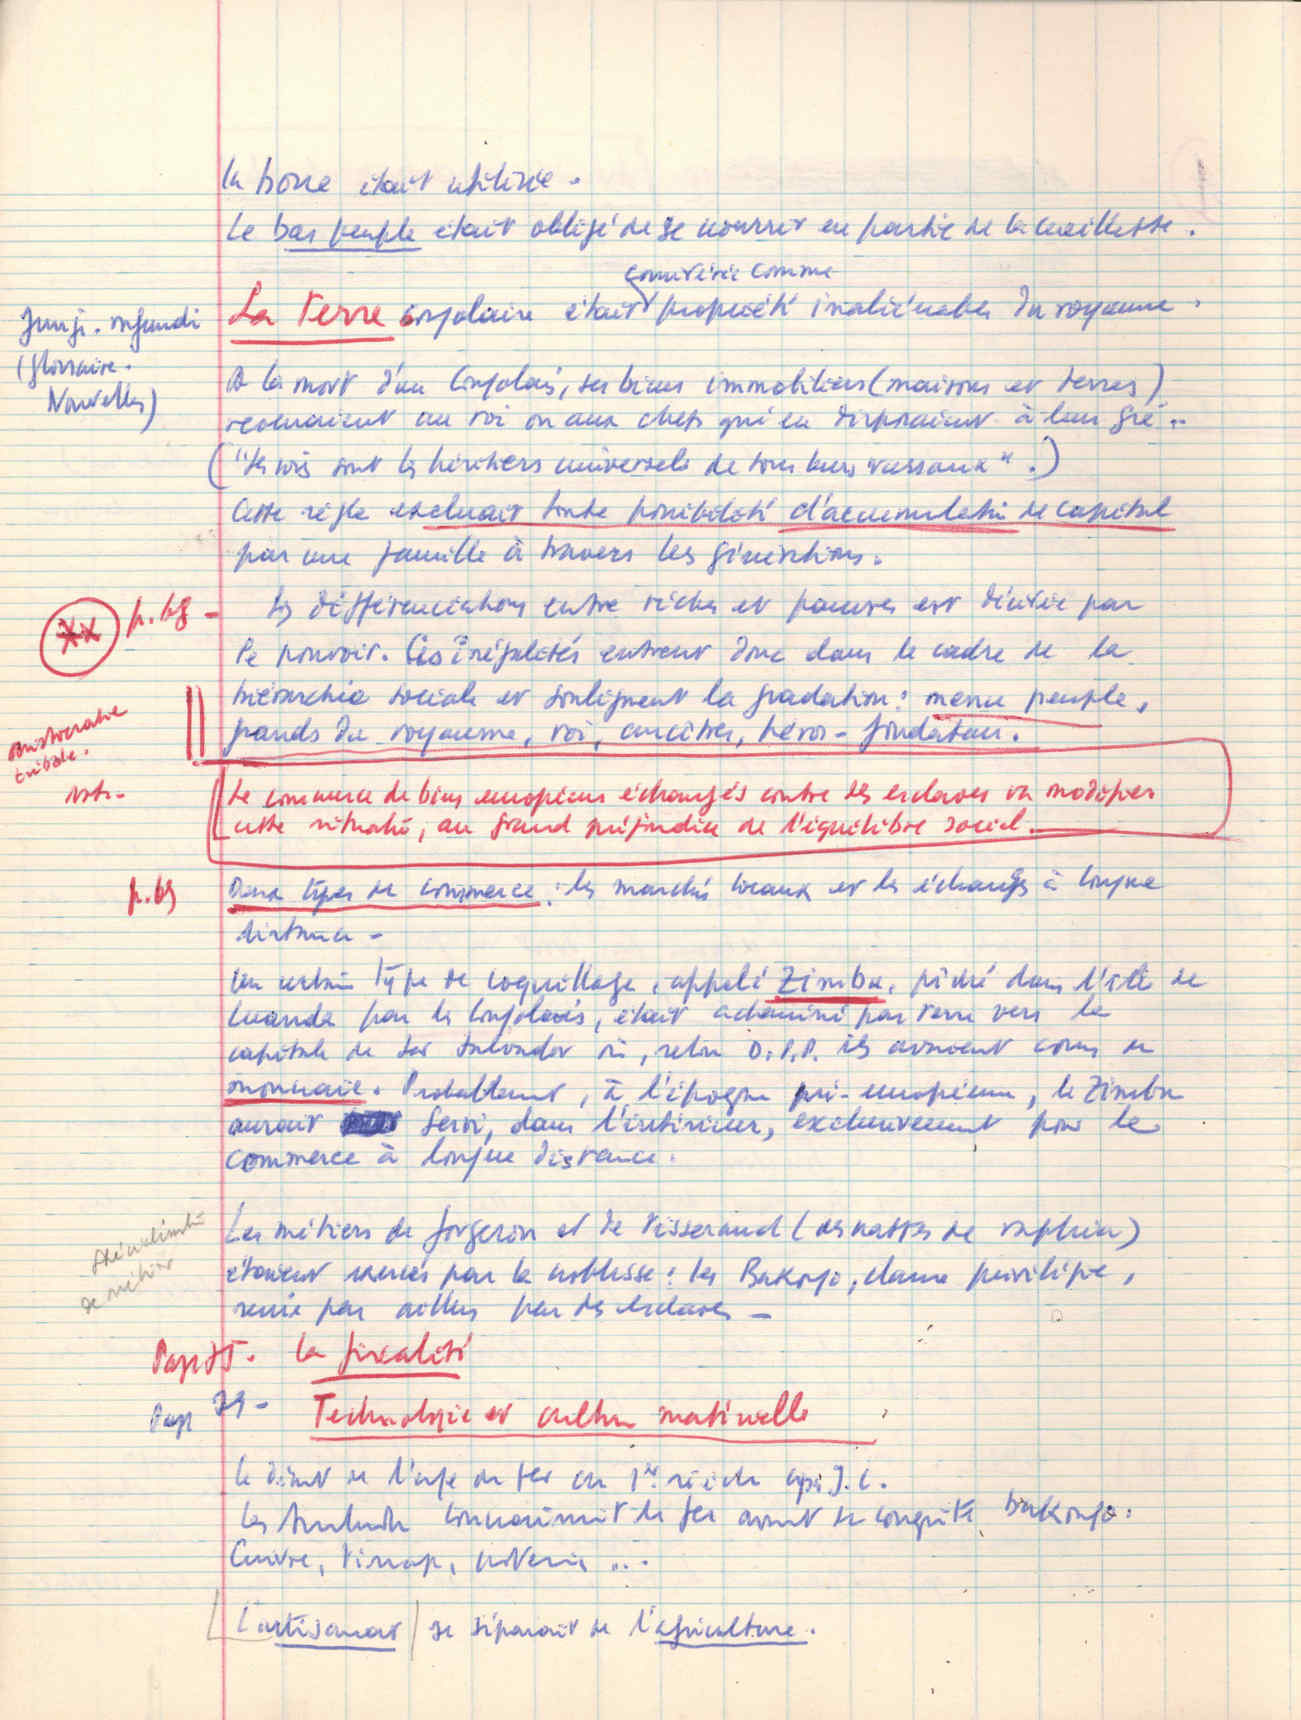 la houe était utilisée.
Le bas peuple était obligé de se nourrir en partie de la cueillette.
considérée comme
La Terre congolaise était propriété inaliénable du royaume.
(glossaire.
Nouvelles)
A la mort d'un Congolais, ses biens immobiliers (maisons et terres)
revenaient au roi ou aux chefs qui en disposaient à leur gré..
("les rois sont les héritiers universels de tous leurs vassaux".)
Cette règle excluait toute possibilité d'accumulation de capital
par une famille à travers les générations.
p. 68 - les différenciations entre riches et pauvres est dictée par
le pouvoir. Ces inégalités entrent donc dans le cadre de la
hiérarchie sociale et soulignent la gradation : menu peuple,
grands du royaume, roi, ancêtres, héros-fondateurs.
aristocratie
tribale.
Note.
Le commerce de biens européens échangés contre des esclaves va modifier
cette situation, au grand préjudice de l'équilibre social.
p. 69 Deux types de commerce : les marchés locaux et les échanges à longue
distance -
Un certain type de coquillage, appelé Zimbu, pêché dans l'île de
Luanda par les Congolais, était acheminé par terre vers la
capitale de San Salvador où, selon D.P.P. ils avaient cours de
monnaie. Probablement, à l'époque pré-européenne, le Zimbu
aurait servi, dans l'intérieur, exclusivement pour le
commerce à longue distance.
Les métiers de forgeron et de tisserand (des nattes de raphia)
étaient exercés par la noblesse : les Bakongo, classe privilégiée,
servie par ailleurs par des esclaves -
de métier
Page 75. La fiscalité
Page 79 - Technologie et culture matérielle
le début de l'âge du fer au 1er siècle apr. J.C.
Les Ambundu connaissaient le fer avant la conquête bakongo.
Cuivre, tissage, poterie ...
L'artisanat se séparait de l'agriculture.